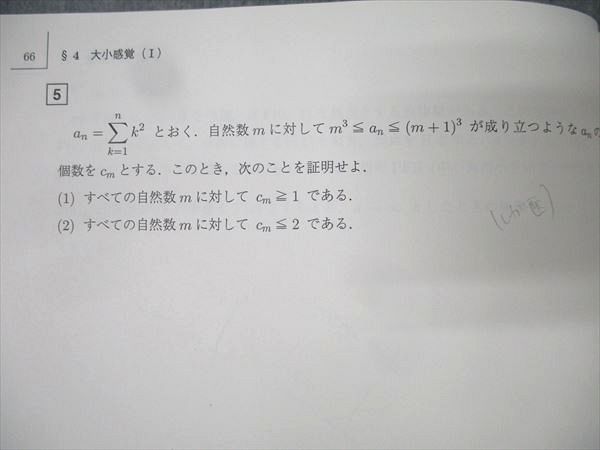 66 § 4 大小感覚 (I)
5
a_n = \sum_{k=1}^{n} k^2 とおく. 自然数 m に対して m^3 ≦ a_n ≦ (m+1)^3 が成り立つような a_n の
個数を c_m とする. このとき, 次のことを証明せよ.
(1) すべての自然数 m に対して c_m ≧ 1 である.
(2) すべての自然数 m に対して c_m ≦ 2 である.